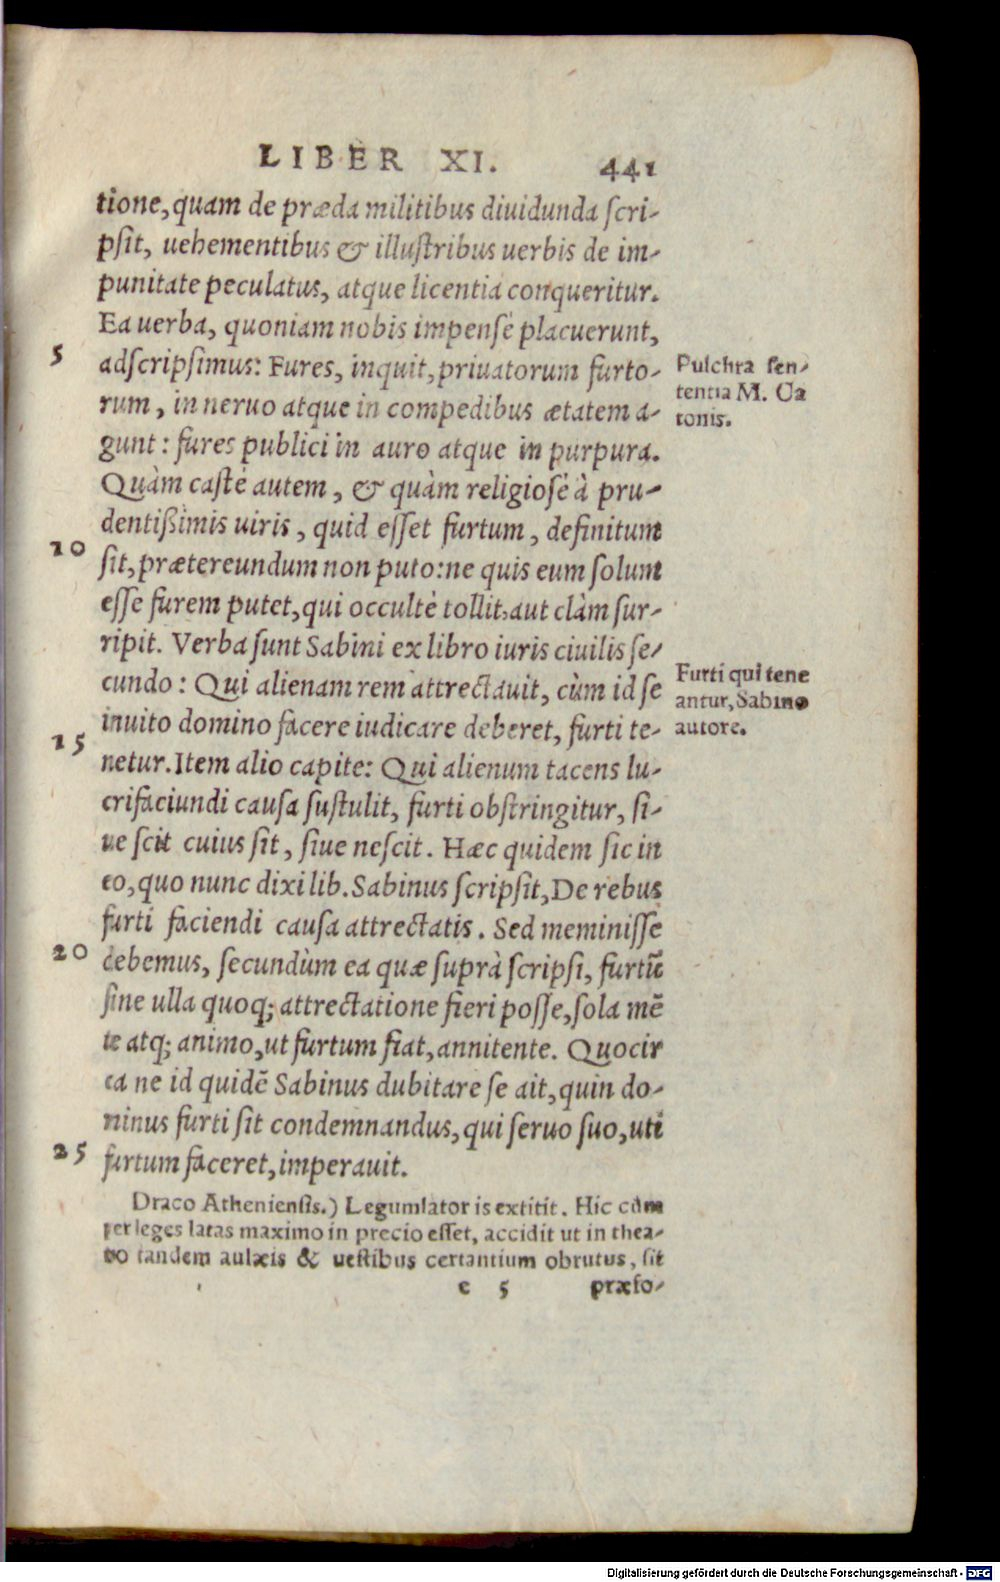 LIBER XI. 441
tione, quam de præda militibus diuidunda scri-
psit, uehementibus & illustribus uerbis de im-
punitate peculatus, atque licentia conqueritur.
Ea uerba, quoniam nobis impensé placuerunt,
5 adscripsimus: Fures, inquit, priuatorum furto-
rum, in neruo atque in compedibus ætatem a-
gunt: fures publici in auro atque in purpura.
Quàm casté autem, & quàm religiosé à pru-
dentißimis uiris, quid esset furtum, definitum
10 sit, prætereundum non puto: ne quis eum solum
esse furem putet, qui occulté tollit, aut clàm sur-
ripit. Verba sunt Sabini ex libro iuris ciuilis se-
cundo: Qui alienam rem attrectauit, cùm id se
inuito domino facere iudicare deberet, furti te-
15 netur. Item alio capite: Qui alienum tacens lu-
crifaciundi causa sustulit, furti obstringitur, si-
ue scit cuius sit, siue nescit. Hæc quidem sic in
eo, quo nunc dixi lib. Sabinus scripsit, De rebus
furti faciendi causa attrectatis. Sed meminisse
20 debemus, secundùm ea quæ suprà scripsi, furtū
sine ulla quoq; attrectatione fieri posse, sola mē
te atq; animo, ut furtum fiat, annitente. Quocir
ca ne id quidē Sabinus dubitare se ait, quin do-
minus furti sit condemnandus, qui seruo suo, uti
25 furtum faceret, imperauit.
Pulchra sen-
tentia M. Ca
tonis.
Furti qui tene
antur, Sabino
autore.
Draco Atheniensis.) Legumlator is extitit. Hic cùm
per leges latas maximo in precio esset, accidit ut in thea-
tro tandem aulæis & uestibus certantium obrutus, sit
e 5 præfo-
Digitalisierung gefördert durch die Deutsche Forschungsgemeinschaft - DFG